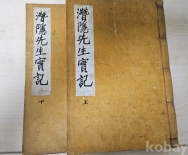 潛隱先生實記
上
潛隱先生實記
下
kobay